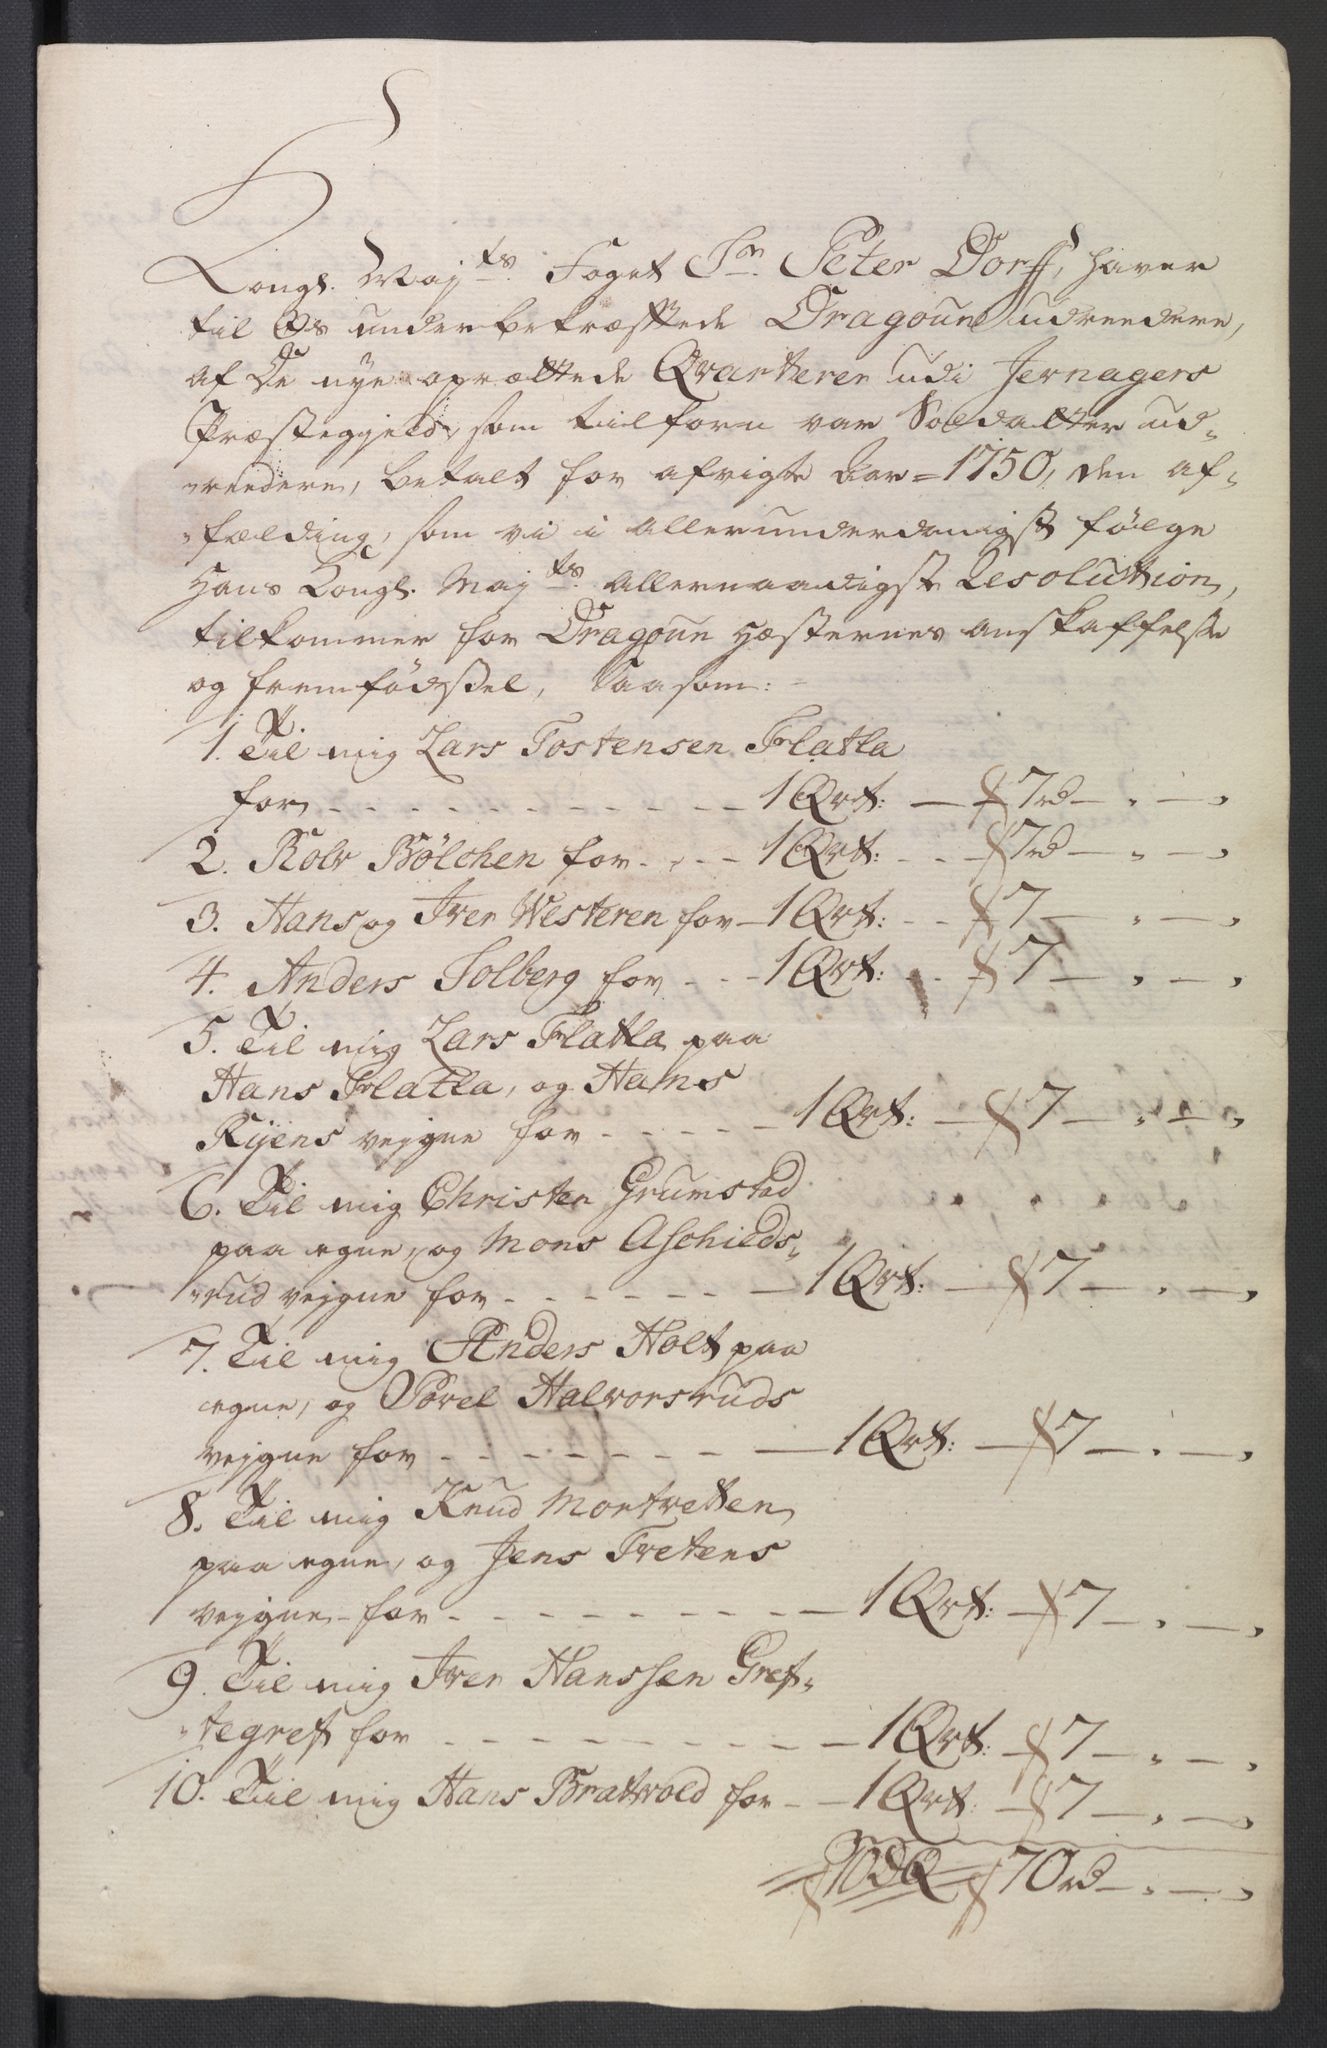 Kongl. Mayts. Foget Sr. Peter Dorff, haver
til Os underbekræftede Dragoun udreedere,
af De nye oprættede Qvarterer udi Jernagers
Præstegjeld, som tilforn var Soldatter ud„
„reedere, betalt for afvigte Aar = 1750, den af„
„fælding, som vi i allerunderdanigst følge
Hans Kongl. Mayts. Allernaadigste Resolution,
tilkommer for Dragoun Hæsternes anskaffelse
og fremfødsel, Saasom: -
1. Til mig Lars Tostensen Flatla
for - - - 1 Qvt: - 7rd - „ - „
2. Rolv Bölchen for - - - 1 Qvt: - - 7rd - „ - „
3. Hans og Iver Westeren for - 1 Qvt: - - 7 - „ - „
4. Anders Solberg for - - - 1 Qvt: - - 7 - „ - „
5. Til mig Lars Flatla paa
Hans Flatla, og Hans
Ryens vejgne for - - - 1 Qvt: - 7 - „ - „
6. Til mig Christen Grumstad
paa egne, og Mons Aschilds„
„rud vejgne for - - - 1 Qvt: - 7 - „ - „
7. Til mig Anders Holt paa
egne, og Povel Halvorsruds
vejgne for - - - 1 Qvt: - 7 - „ - „
8. Til mig Knud Mortvetten
paa egne, og Jens Tvetens
vejgne for - - - 1 Qvt: - 7 - „ - „
9. Til mig Iver Hanssen Gref„
„tegref for - - - 1 Qvt: - 7 - „ - „
10. Til mig Hans Bratvold for - - 1 Qvt: - 7 - „ - „
70rd - „ - „